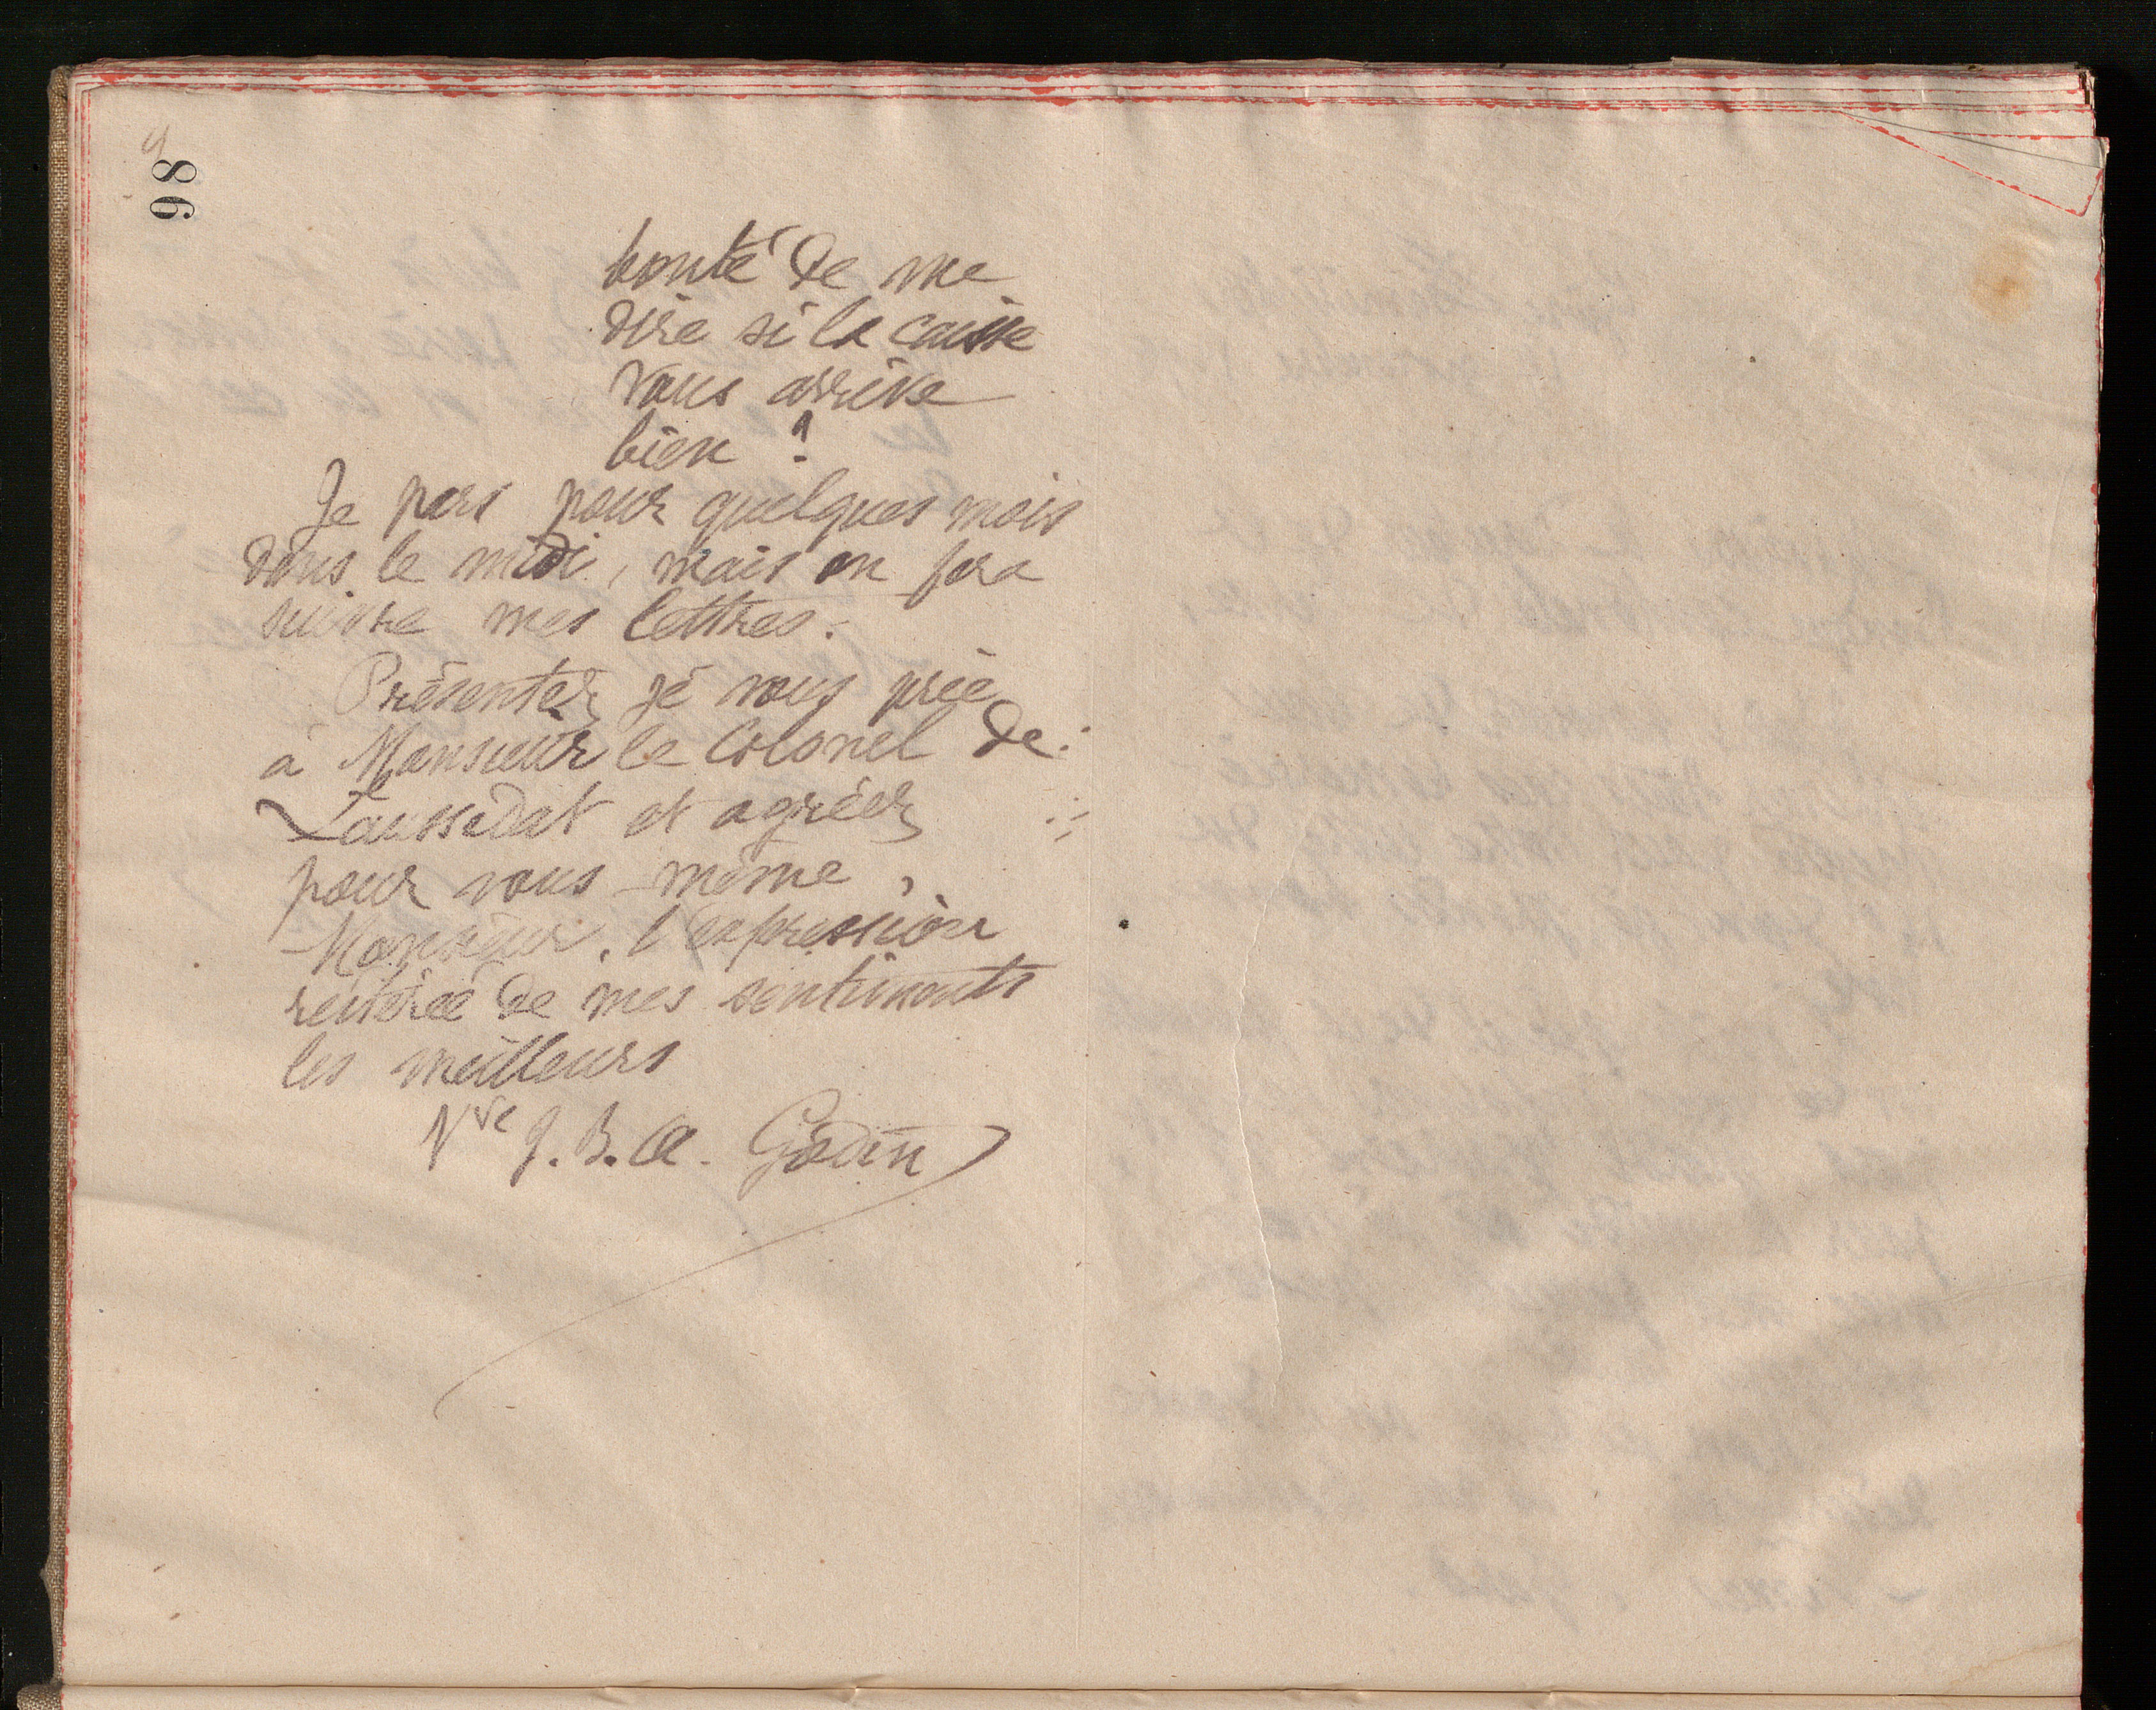 98
bonté de me
dire si la caisse
vous arrive
bien ?
Je pars pour quelques mois
dans le midi, mais on fera
suivre mes lettres.
Présentez, je vous prie
à Monsieur le Colonel de
Laussedat et agréez
pour vous-même,
Monsieur, l'expression
réitérée de mes sentiments
les meilleurs
Vve J. B. A. Godin